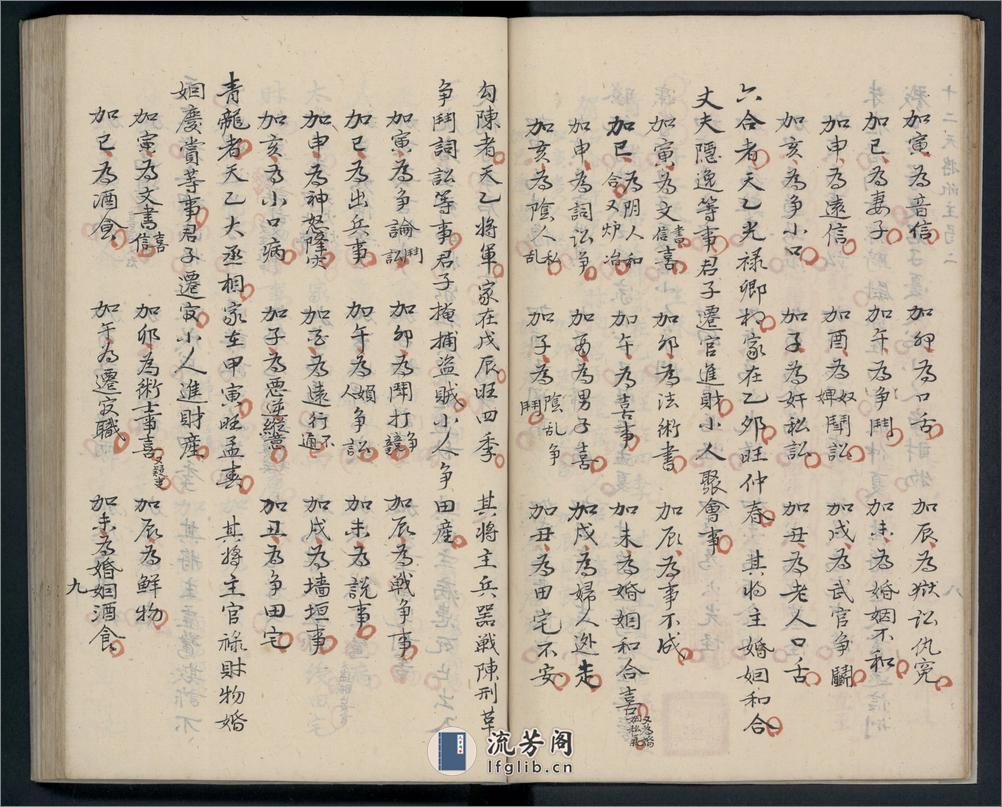 加寅為音信 加卯為口舌 加辰為獄訟仇冤
加巳為妻子 加午為争鬥 加未為婚姻不和
加申為遠信 加酉為奴婢鬪訟 加戌為武官争鬭
加亥為争小口 加子為奸私訟 加丑為老人口舌
六合者天乙光禄卿相家在乙夘旺仲春 其将主婚姻和合
丈夫隠逸等事君子遷官進財小人聚會事
加寅為文書信喜 加卯為法術書 加辰為事不成
加巳為阴人和合又炉冶 加午為喜事 加未為婚姻和合喜
加申為詞訟争 加酉為男子喜 加戌為婦人迯走
加亥為陰人私乱 加子為陰乱争鬥 加丑為田宅不安
勾陳者天乙将軍家在戊辰旺四季 其将主兵噐戦陳刑草
争鬥詞訟等事君子掩捕盗賊小人争田産
加寅為争論鬥訟 加卯為鬥打争競 加辰為戦争事
加巳為出兵事 加午為婦人争訟 加未為説事
加申為神怒降灾 加酉為遠行不通 加戌為墙垣事
加亥為小口病 加子為悪逆 加丑為争田宅
青龍者天乙大丞相家在甲寅旺孟春 其将主官禄財物婚
姻慶賞等事君子遷官小人進財産
加寅為文書信喜 加卯為術士事喜 加辰為鮮物
加巳為酒食 加午為遷官職 加未為婚姻酒食
九
流芳阁
lfglib.cn